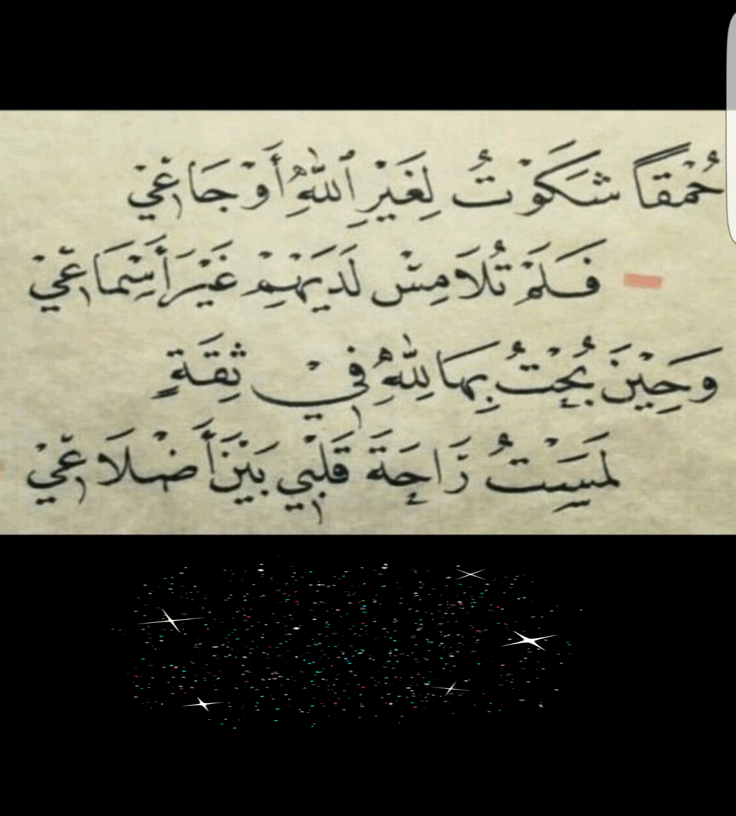 حُمْقًا شَكَوْتُ لِغَيْرِ ٱللّٰهِ أَوْجَاعِيْ
فَلَمْ تُلَامِسْ لَدَيْهِمْ غَيْرَ أَسْمَاعِيْ
وَحِيْنَ بُحْتُ بِهَا لِلّٰهِ فِيْ ثِقَةٍ
لَمَسْتُ رَاحَةَ قَلْبِيْ بَيْنَ أَضْلَاعِيْ